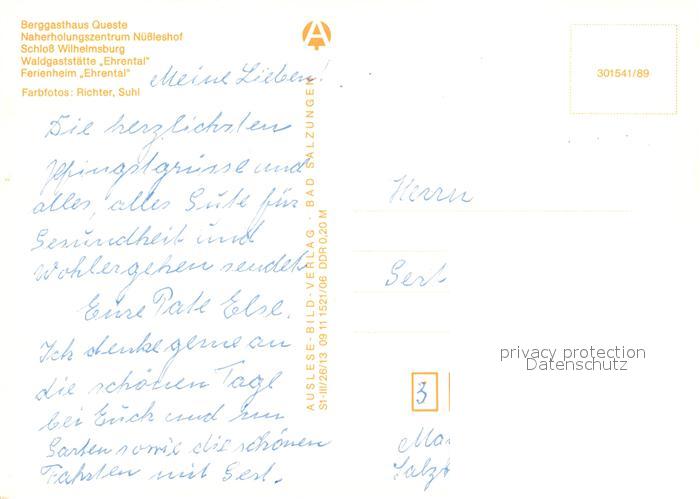 Berggasthaus Queste
Naherholungszentrum Nüßleshof
Schloß Wilhelmsburg
Waldgaststätte „Ehrental"
Ferienheim „Ehrental"
Farbfotos: Richter, Suhl
Meine Lieben!
Die herzlichsten
Pfingstgrüsse und
alles, alles Gute für
Gesundheit und
Wohlergehen sendet
Eure Pate Else.
Ich denke gerne an
die schönen Tage
bei Euch und im
Garten sowie die schönen
Fahrten mit Gert.
AUSLESE-BILD-VERLAG · BAD SALZUNGEN
S1-III/26/13 09 11 1521/06 DDR 0,20 M
301541/89
Herrn
Gert
privacy protection
Datenschutz
3
Ma
Salz